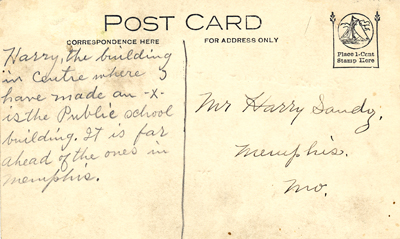 POST CARD
CORRESPONDENCE HERE
FOR ADDRESS ONLY
Place 1-Cent
Stamp Here
Harry, the building
in centre where I
have made an -X-
is the Public school
building. It is far
ahead of the ones in
Memphis.
Mr Harry Sandy,
Memphis.
Mo.